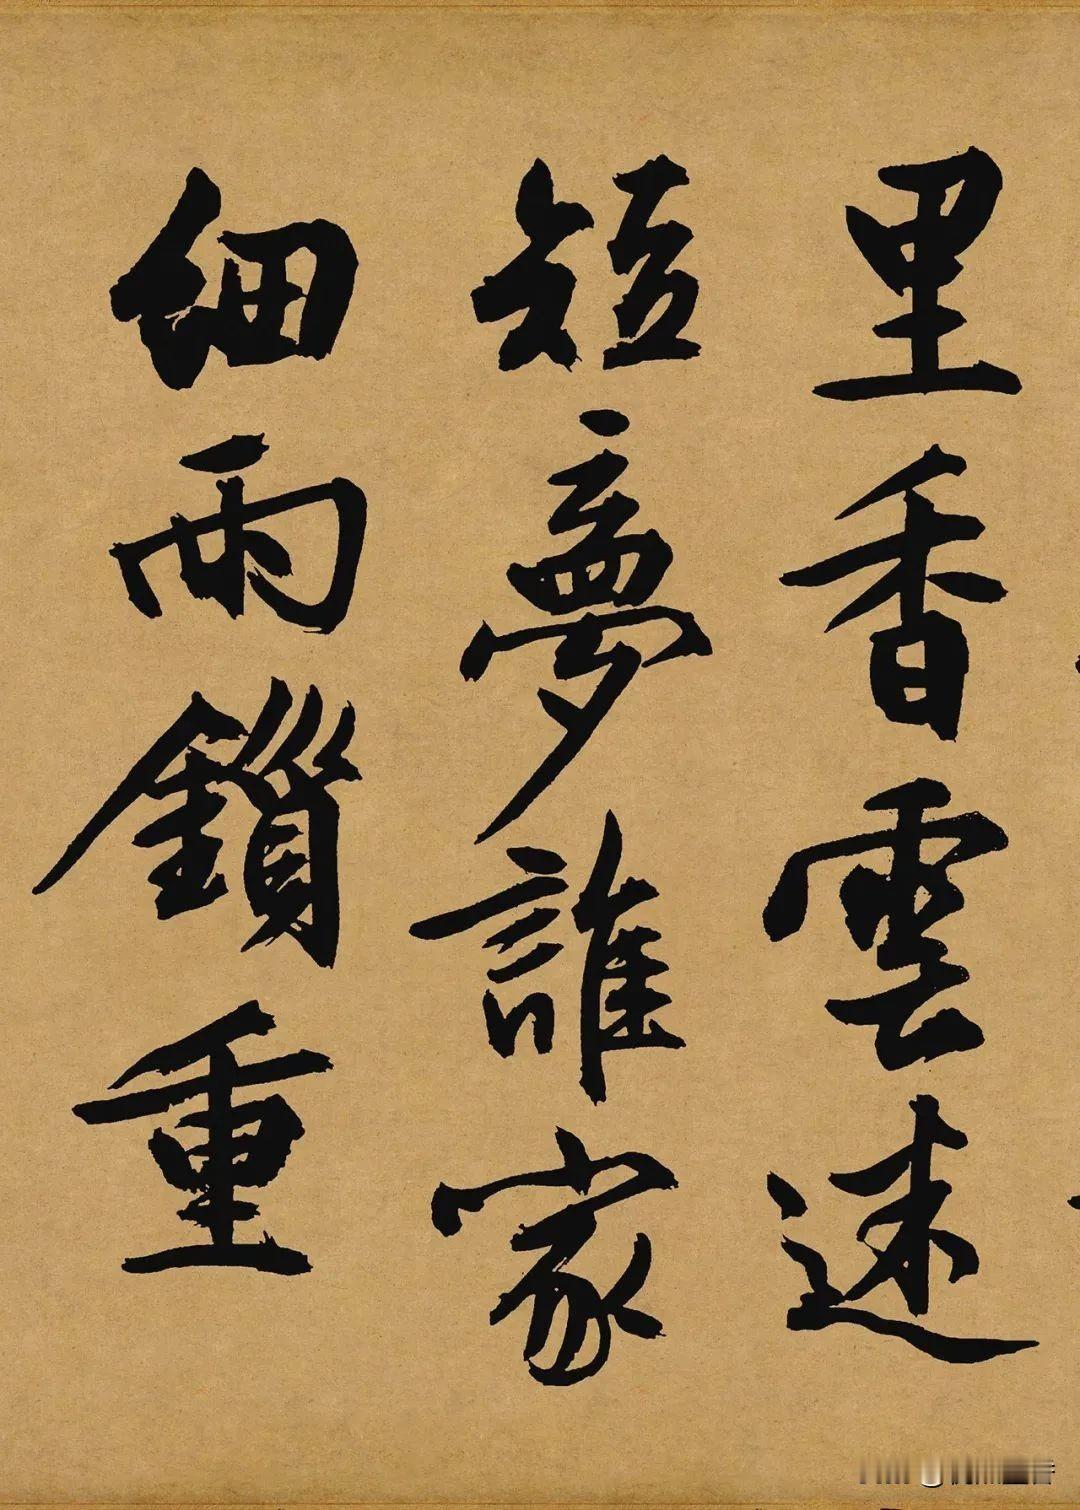 里香雲迷
短夢誰家
細雨鎖重